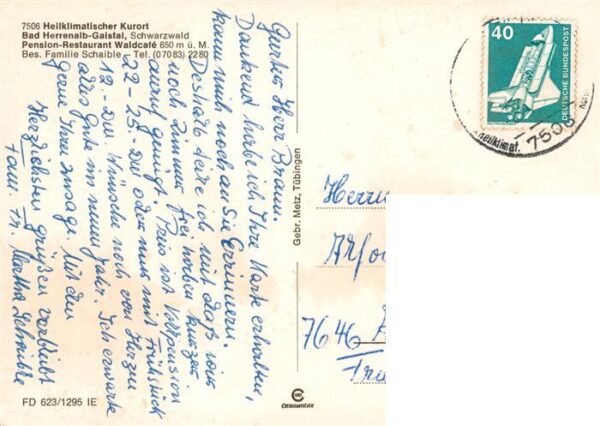 7506 Heilklimatischer Kurort
Bad Herrenalb-Gaistal, Schwarzwald
Pension-Restaurant Waldcafé 650 m ü. M.
Bes. Familie Schaible – Tel. (07083) 2280
Guter Herr Braun.
Dankend habe ich Ihre Karte erhalten,
kann mich noch an Sie Erinnern.
Deshalb teile ich mit daß wir
noch Zimmer frei haben
Preis ist Vollpension
22 - 25.- DM oder nur mit Frühstück
12.- DM. Wünsche noch von Herzen
alles Gute im neuen Jahr. Ich erwarte
gerne Ihre Zusage. Mit den
Herzlichsten Grüßen verbleibt
Fam. Fr. Martha Schaible
Gebr. Metz, Tübingen
40
DEUTSCHE BUNDESPOST
Heilklimat.
Herrn
7646
FD 623/1295 IE